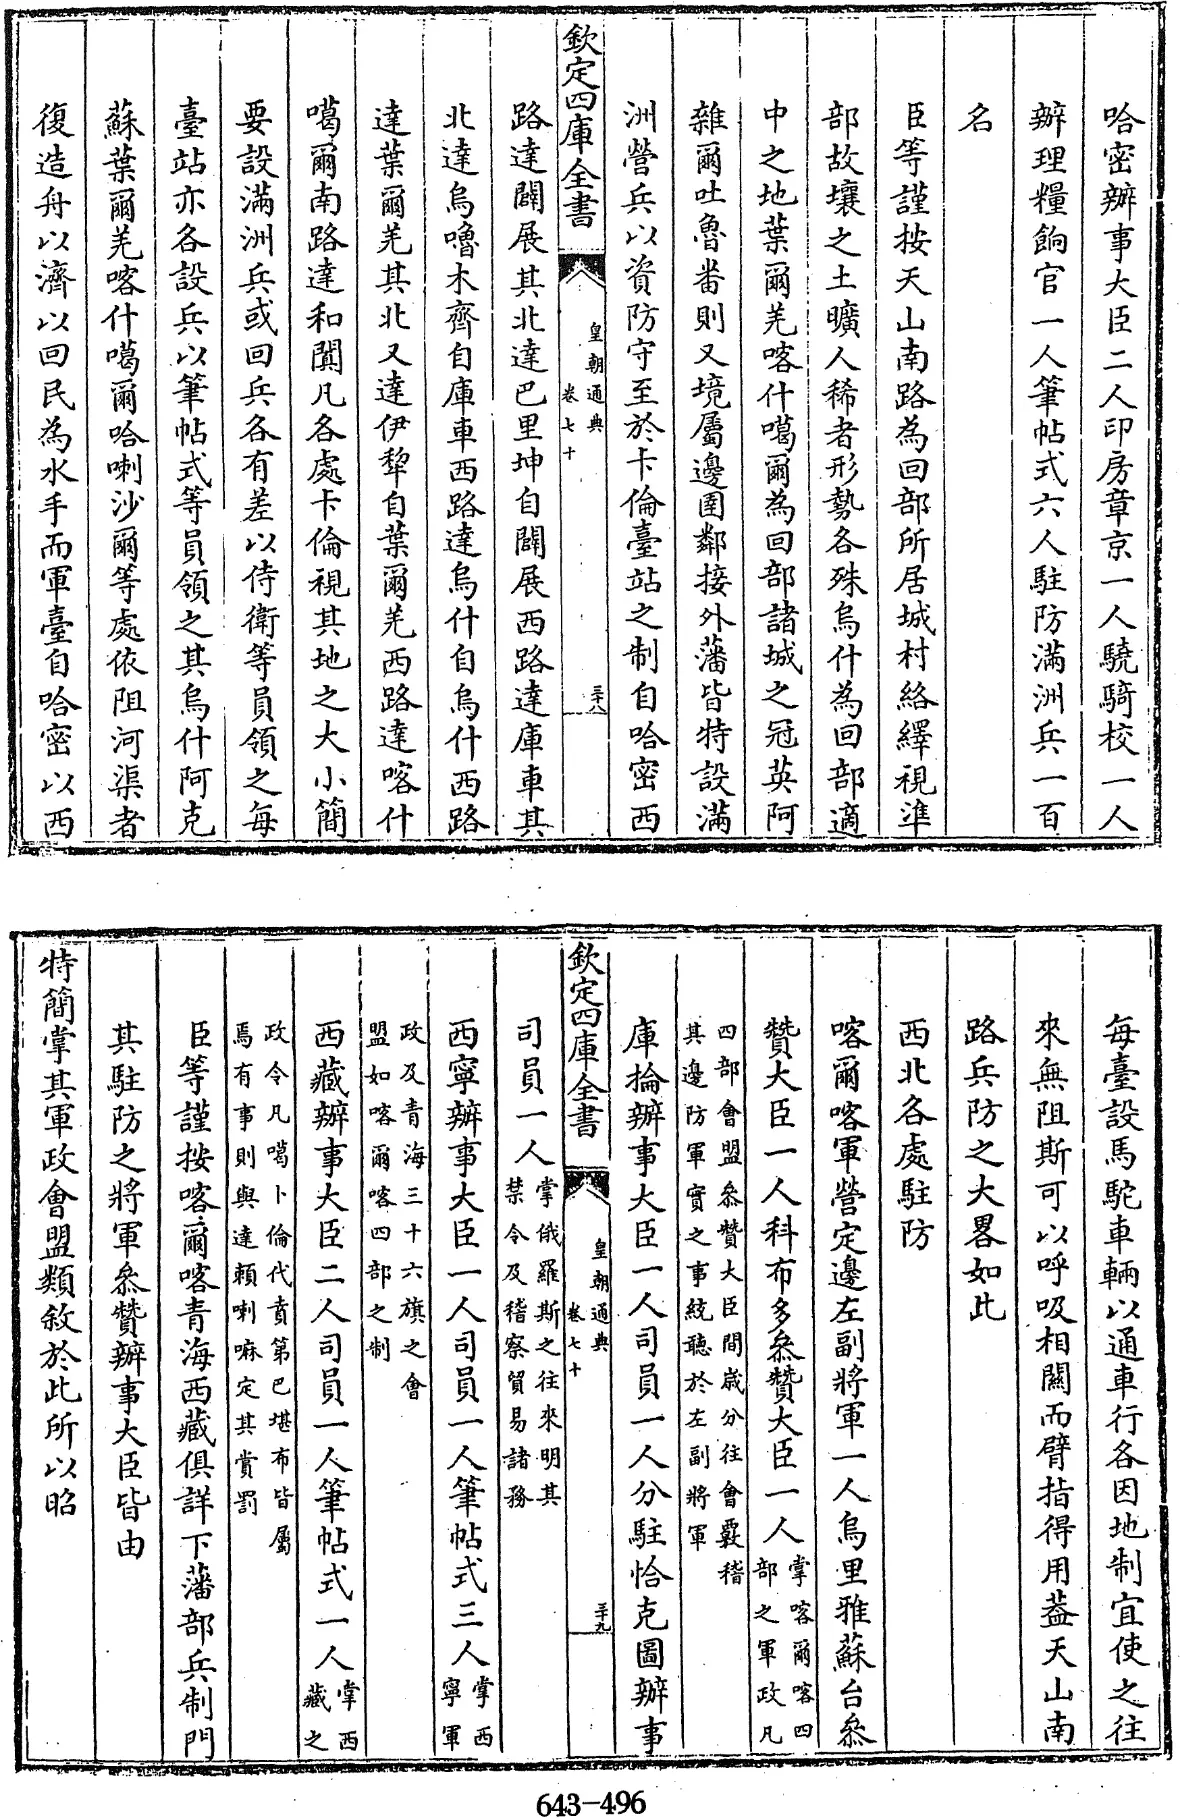 哈密辦事大臣二人印房章京一人驍騎校一人
辦理糧餉官一人筆帖式六人駐防滿洲兵一百
名
臣等謹按天山南路為回部所居城村絡繹視準
部故壤之土曠人稀者形勢各殊烏什為回部適
中之地葉爾羌喀什噶爾為回部諸城之冠英阿
雜爾吐魯畨則又境屬邊圉鄰接外藩皆特設滿
洲營兵以資防守至於卡倫臺站之制自哈密西
欽定四庫全書
皇朝通典
卷七十
三十八
路達闢展其北達巴里坤自闢展西路達庫車其
北達烏嚕木齊自庫車西路達烏什自烏什西路
達葉爾羌其北又達伊犂自葉爾羌西路達喀什
噶爾南路達和闐凡各處卡倫視其地之大小簡
要設滿洲兵或回兵各有差以侍衛等員領之每
臺站亦各設兵以筆帖式等員領之其烏什阿克
蘇葉爾羌喀什噶爾哈喇沙爾等處依阻河渠者
復造舟以濟以回民為水手而軍臺自哈密以西
每臺設馬駝車輛以通車行各因地制宜使之往
來無阻斯可以呼吸相關而臂指得用葢天山南
路兵防之大畧如此
西北各處駐防
喀爾喀軍營定邊左副將軍一人烏里雅蘇台叅
贊大臣一人科布多叅贊大臣一人掌喀爾喀四
部之軍政凡
四部會盟叅贊大臣間歲分往會覈稽
其邊防軍實之事統聽於左副將軍
庫掄辦事大臣一人司員一人分駐恰克圖辦事
欽定四庫全書
皇朝通典
卷七十
三十九
司員一人掌俄羅斯之往來明其
禁令及稽察貿易諸務
西寧辦事大臣一人司員一人筆帖式三人掌西
寧軍
政及青海三十六旗之會
盟如喀爾喀四部之制
西藏辦事大臣二人司員一人筆帖式一人掌西
藏之
政令凡噶卜倫代賁第巴堪布皆屬
焉有事則與達賴喇嘛定其賞罰
臣等謹按喀爾喀青海西藏俱詳下藩部兵制門
其駐防之將軍叅贊辦事大臣皆由
特簡掌其軍政會盟類敘於此所以昭
643-496